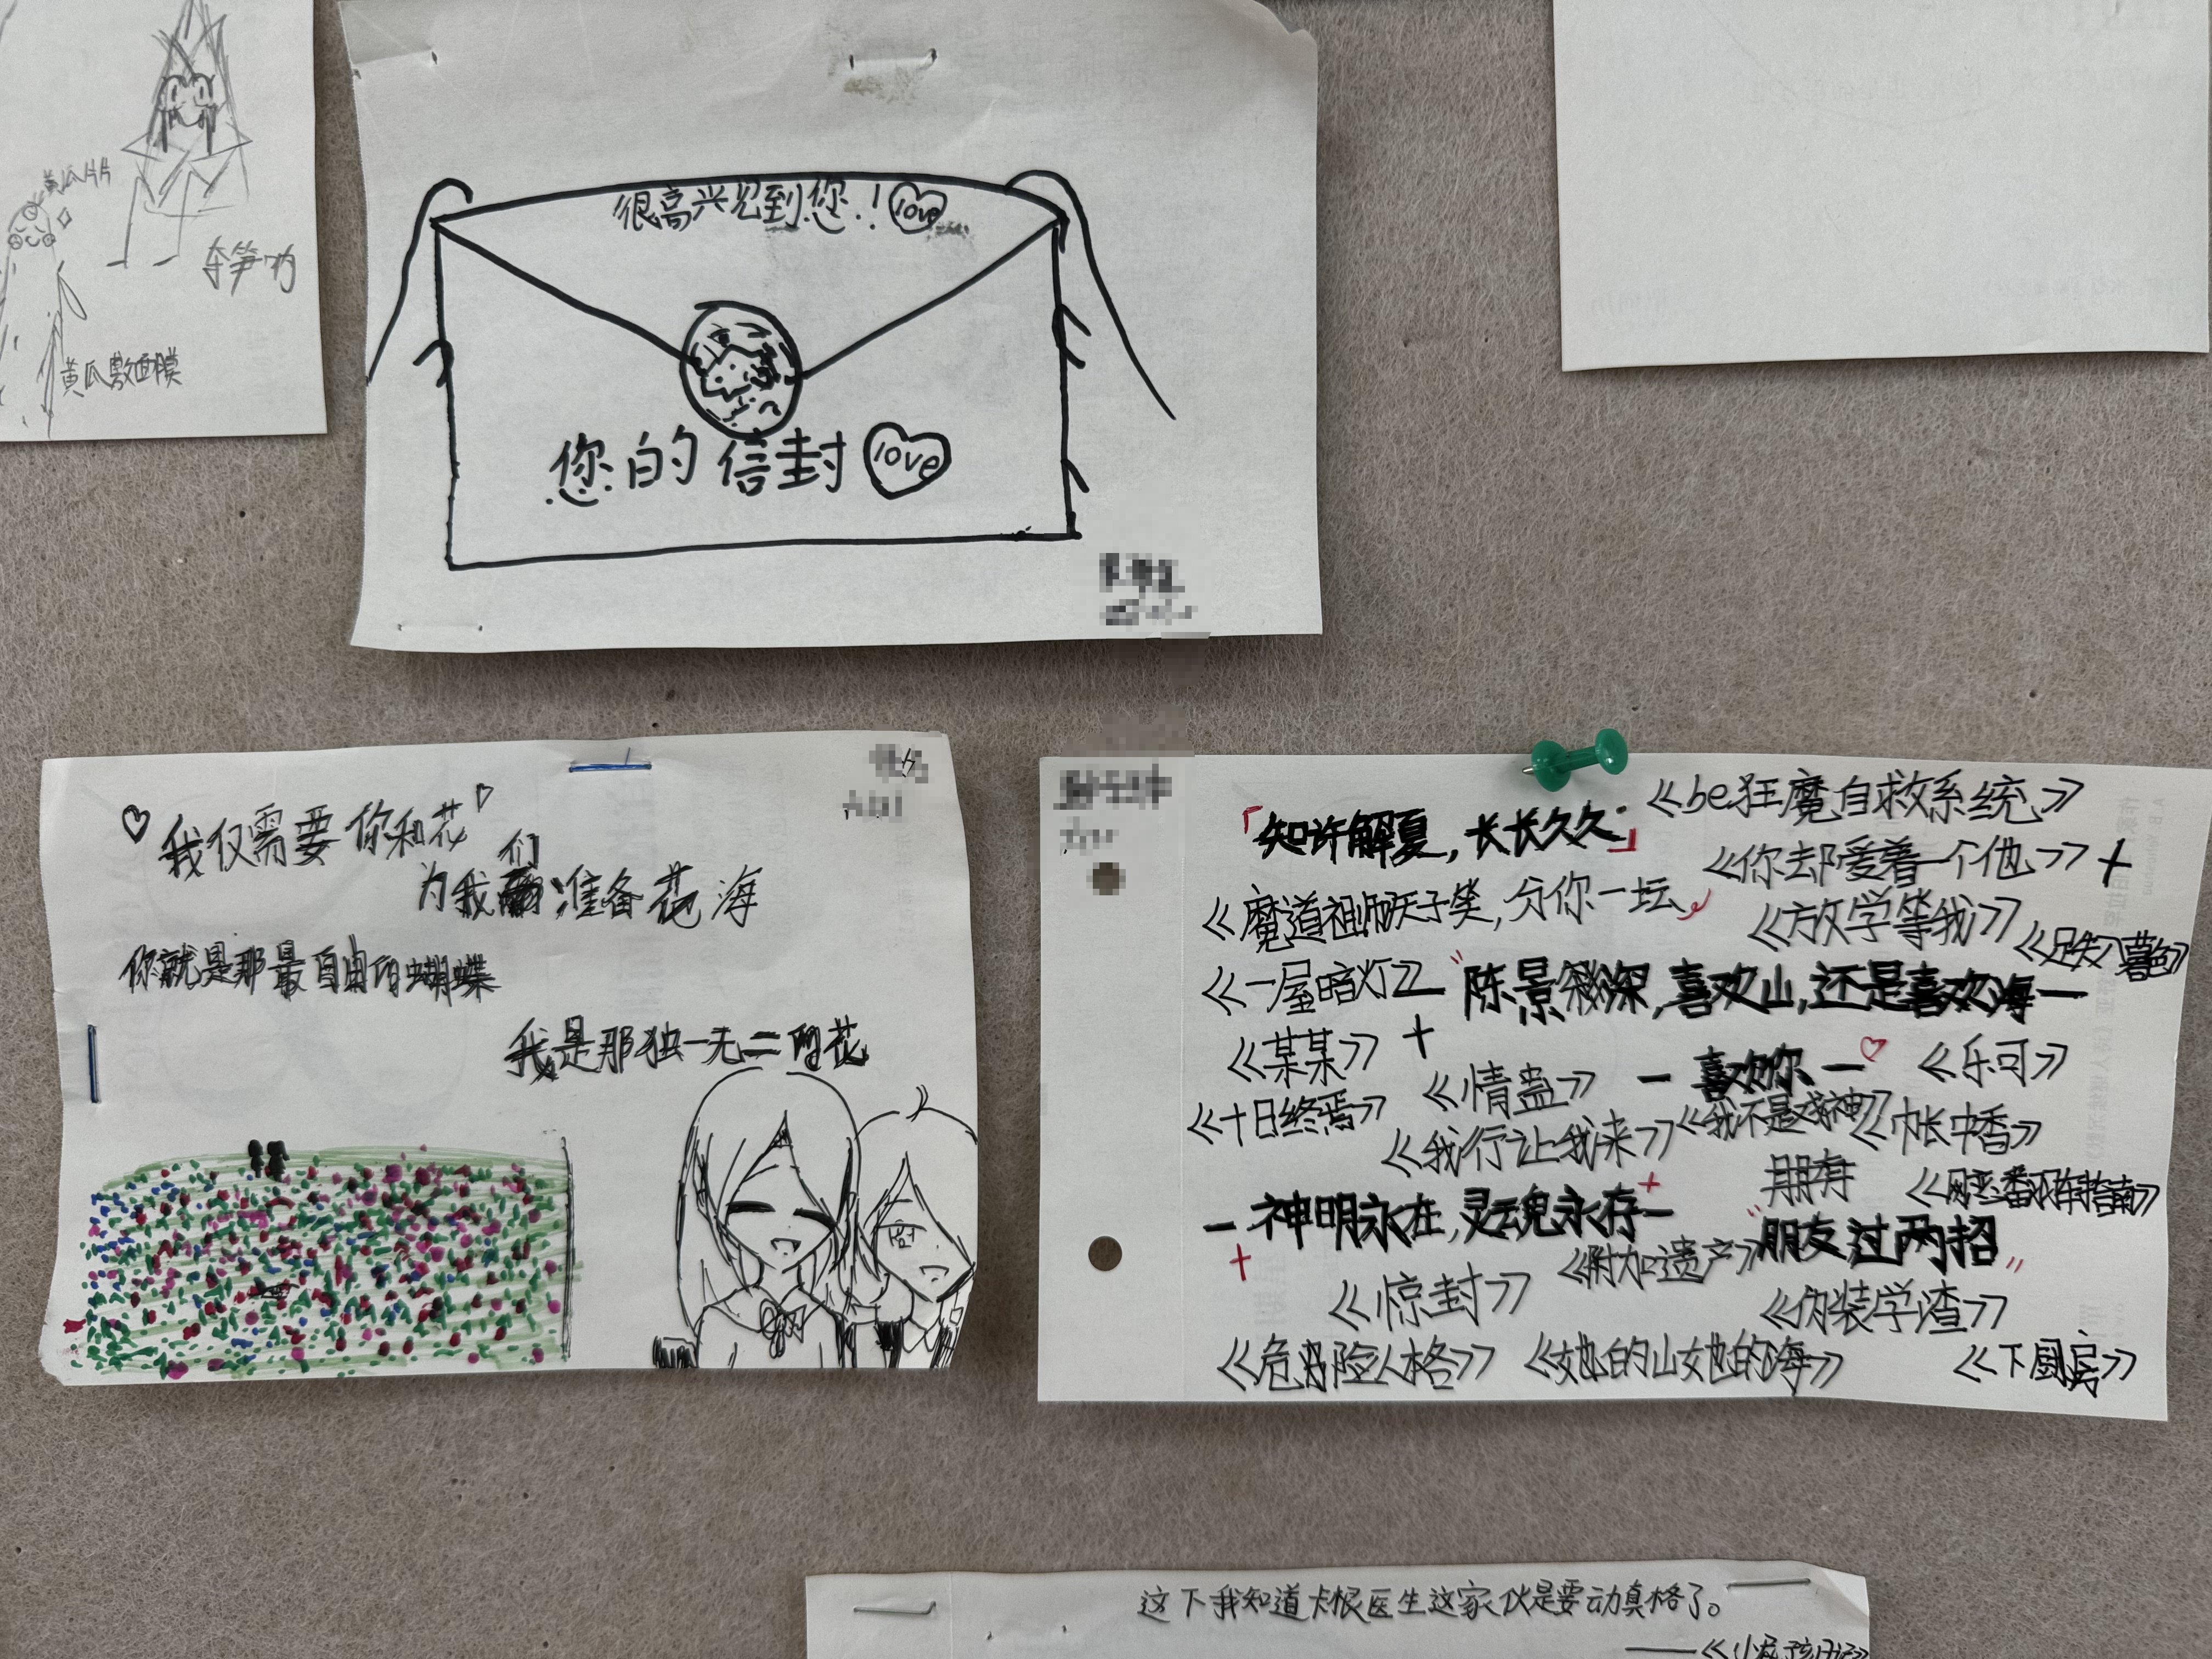 黄瓜片片
夺笋呐
黄瓜敷面膜
很高兴见到您！love
您的信封 love
我仅需要你和花
为我们准备花海
你就是那最自由的蝴蝶
我是那独一无二的花
「知许解夏，长长久久」
《be狂魔自救系统》
《你却爱着一个他》+
《魔道祖师》天子笑，分你一坛
《放学等我》
《一屋暗灯》
陈景深，喜欢山，还是喜欢海—
《某某》+
—喜欢你—
《乐可》
《情蛊》
《十日终焉》
《我行让我来》
《我不是戏神》
《帐中香》
朋有
—神明永在，灵魂永存—
"朋友过两招"
《附加遗产》
《惊封》
《伪装学渣》
《危险人格》
《她的山她的海》
《下厨房》
这下我知道卡根医生这家伙是要动真格了。